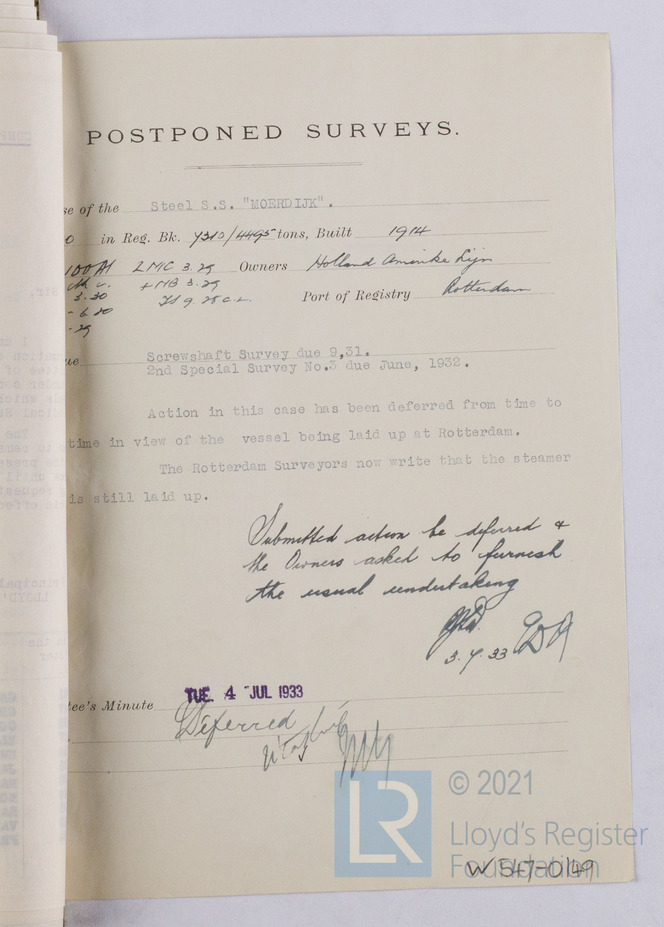 POSTPONED SURVEYS.
se of the Steel S.S. "MOERDIJK".
0 in Reg. Bk. 7310/4495 tons, Built 1914
100A1 LMC 3.29 Owners Holland Amerika Lijn
+NB 3.29
3.30 TS 9.28 C.L. Port of Registry Rotterdam
- 6.30
- 29
ue Screwshaft Survey due 9,31.
2nd Special Survey No.3 due June, 1932.
Action in this case has been deferred from time to
time in view of the vessel being laid up at Rotterdam.
The Rotterdam Surveyors now write that the steamer
is still laid up.
Submitted action be deferred &
the Owners asked to furnish
the usual undertaking
3.7.33
tee's Minute TUE. 4 JUL 1933
Deferred
LR
© 2021
Lloyd's Register
Foundation
W547-0149